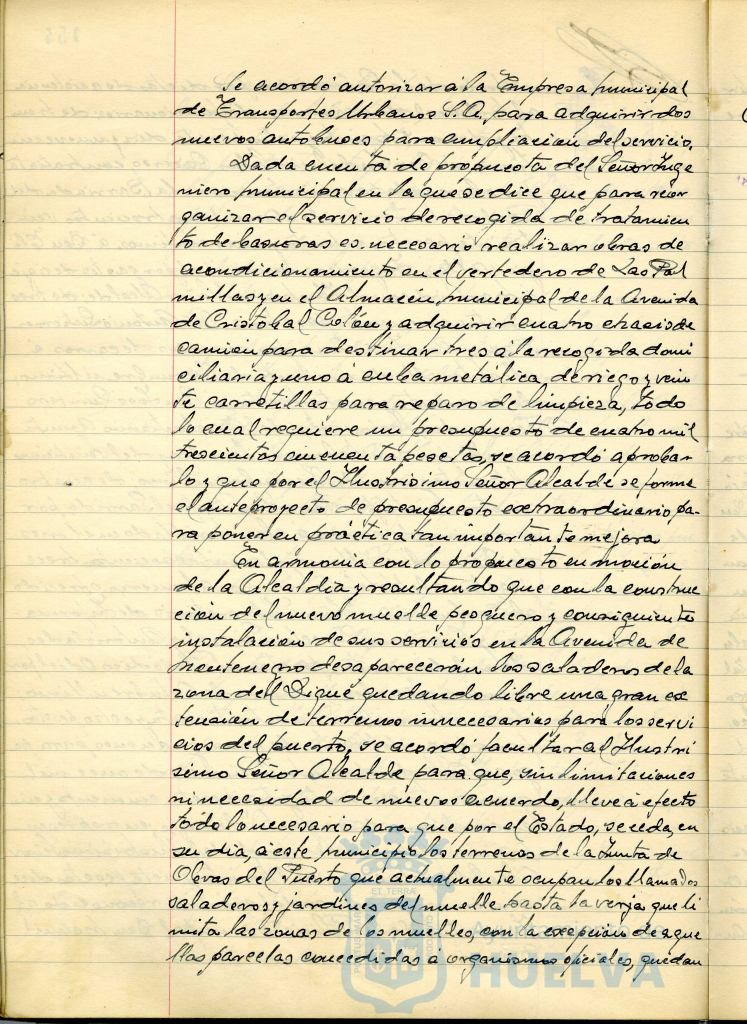 Se acordó autorizar á la Empresa municipal
de Transportes Urbanos S.A. para adquirir dos
nuevos autobuses para ampliacion del servicio.
Dada cuenta de propuesta del Señor Inge
niero municipal en la que se dice que para reor
ganizar el servicio de recogida de tratamien
to de basuras es necesario realizar obras de
acondicionamiento en el vertedero de Las Pal
millas y en el Almacén municipal de la Avenida
de Cristobal Colón y adquirir cuatro chasis de
camión para destinar tres á la recogida domi
ciliaria y uno á cuba metálica de riego y vein
te carretillas para reparo de limpieza, todo
lo cual requiere un presupuesto de cuatro mil
trescientas cincuenta pesetas, se acordó aprobar
lo y que por el Ilustrisimo Señor Alcalde se forme
el anteproyecto de presupuesto extraordinario pa-
ra poner en práctica tan importante mejora
En armonia con lo propuesto en moción
de la Alcaldia y resultando que con la construc
ción del nuevo muelle pesquero y consiguiente
instalación de sus servicios en la Avenida de
Montenegro desaparecerán los saladeros de la
zona del Dique quedando libre una gran ex
tensión de terrenos innecesarios para los servi
cios del puerto, se acordó facultar al Ilustri
simo Señor Alcalde para que, sin limitaciones
ni necesidad de nuevos acuerdo, lleve á efecto
todo lo necesario para que por el Estado, se ceda, en
su dia, á este municipio los terrenos de la Junta de
Obras del Puerto que actualmente ocupan los llamados
saladeros y jardines del muelle hasta la verja que li
mita las zonas de los muelles, con la excepción de aque
llas parcelas concedidas á organismos oficiales, quedan
HUELVA